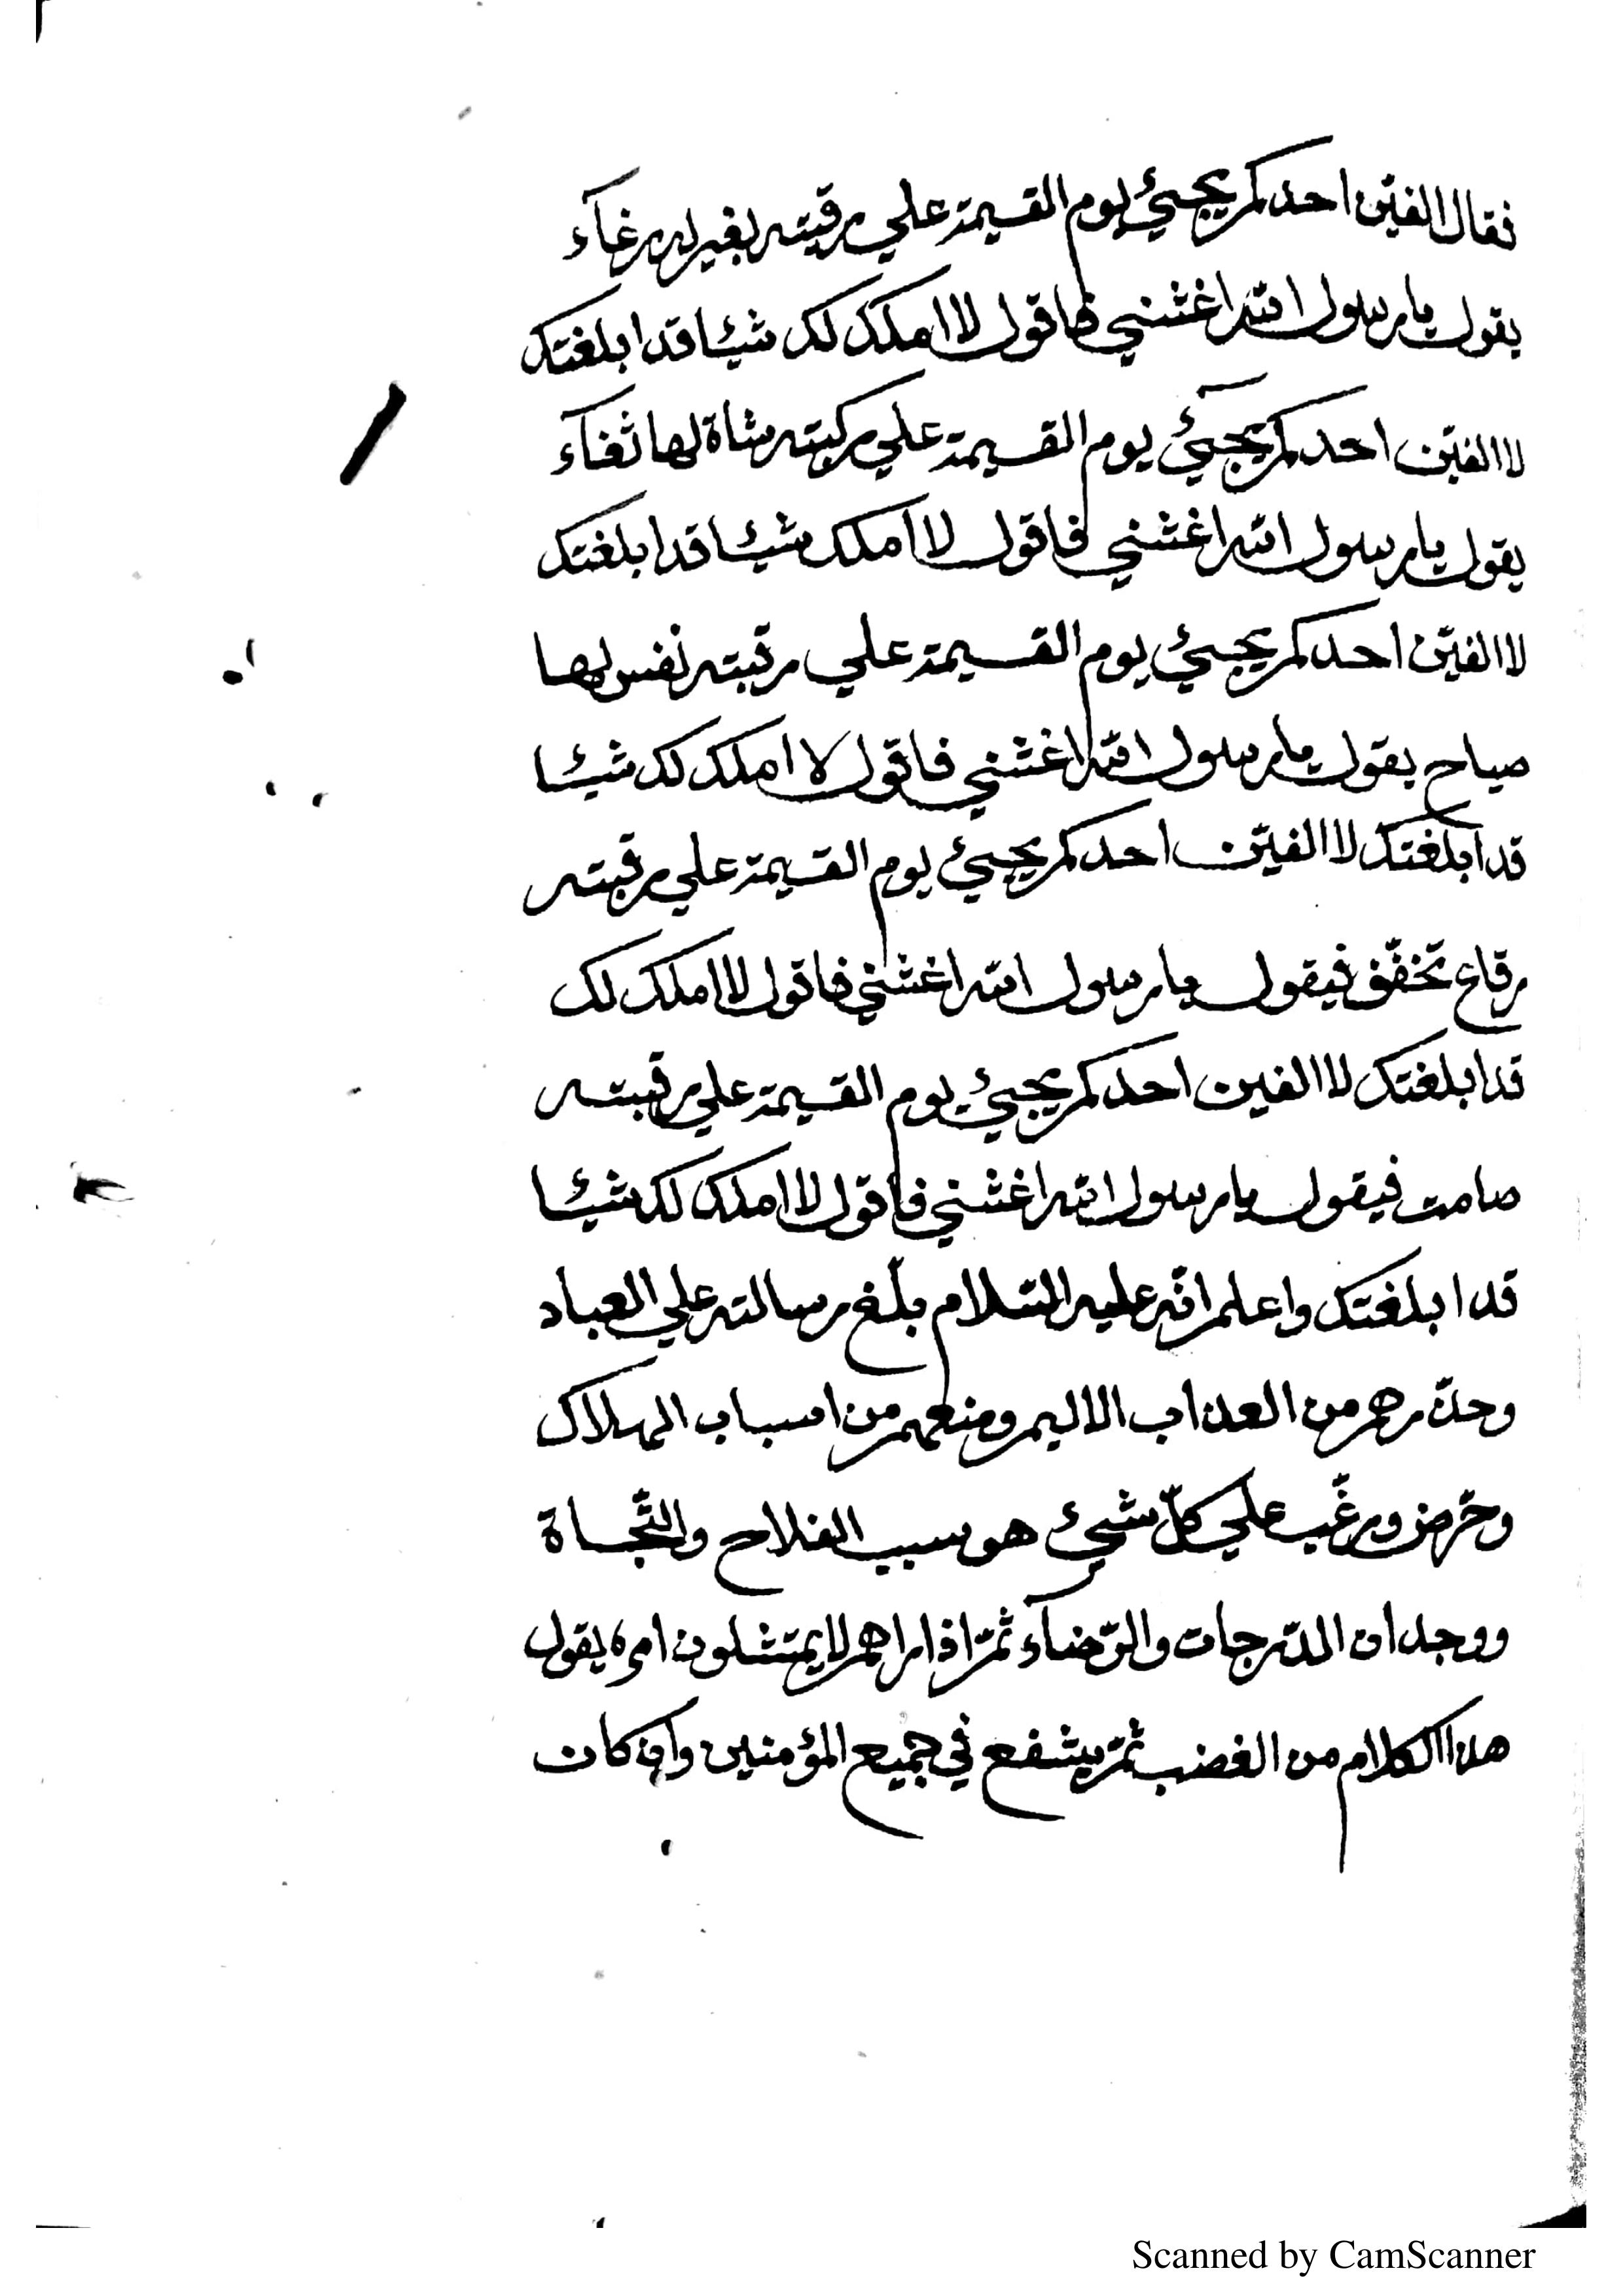 فقال الفيّن احدكم يجيئ يوم القيمة علي رقبته بغير له رغآء
يقول يا رسول الله اغثني فاقول لا املك لك شيئا قد ابلغتك
لا الفيّن احدكم يجيئ يوم القيمة علي ركبته شاة لها ثغآء
يقول يا رسول الله اغثني فاقول لا املك شيئا قد ابلغتك
لا الفيّن احدكم يجيئ يوم القيمة علي رقبته نفس لها
صياح يقول يا رسول الله اغثني فاقول لا املك لك شيئا
قد ابلغتك لا الفيّن احدكم يجيئ يوم القيمة علي رقبته
رقاع تخفّق فيقول يا رسول الله اغثني فاقول لا املك لك
قد ابلغتك لا الفين احدكم يجيئ يوم القيمة علي رقبته
صامت فيقول يا رسول الله اغثني فاقول لا املك لك شيئا
قد ابلغتك واعلم انّه عليه السّلام بلّغ رسالته علي العباد
وحذّرهم من العذاب الاليم ومنعهم من اسباب الهلاك
وحرّض ورغّب علي كلّ شيئ هو سبب الفلاح والنّجاة
ووجدان الدّرجات والرّضآء ثمّ اذا راهم لا يمتثلون امره يقول
هذا الكلام من الغضب ثمّ يشفع في جميع المؤمنين وان كان
Scanned by CamScanner